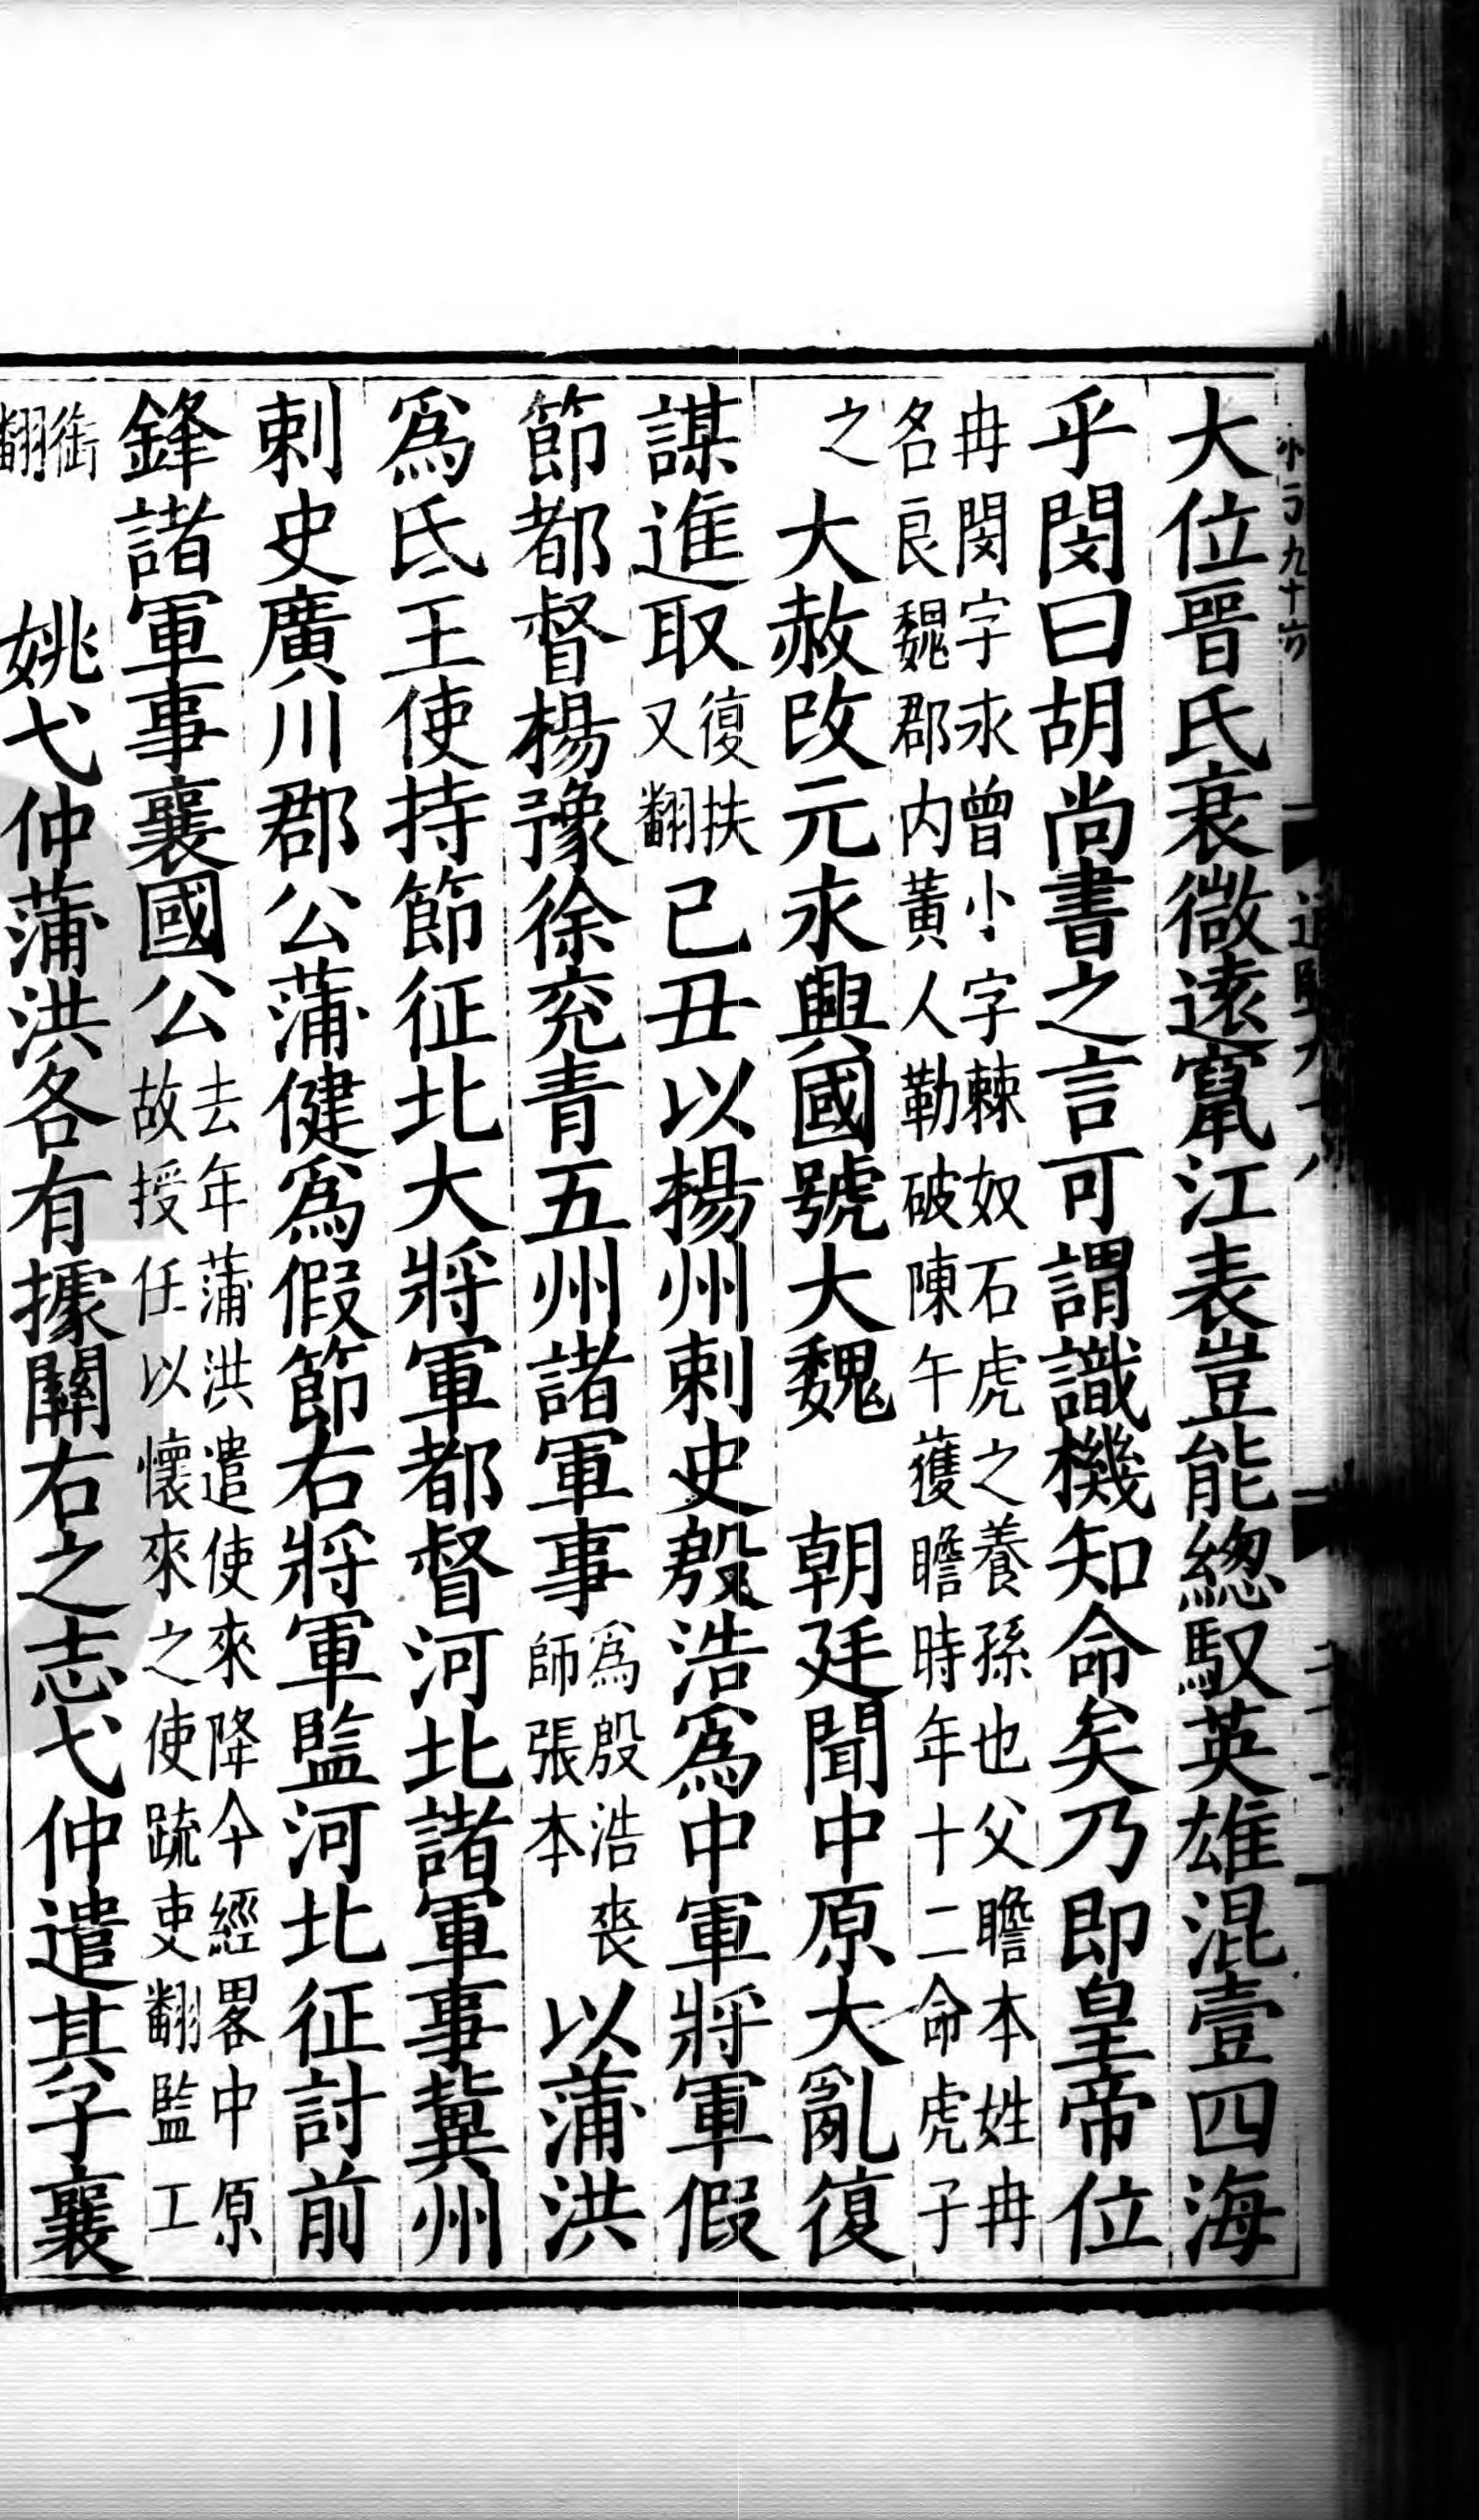 大位晉氏衰微遠竄江表豈能緫馭英雄混壹四海
乎閔曰胡尚書之言可謂識機知命矣乃即皇帝位
冉閔字永曾小字棘奴石虎之養孫也父瞻本姓冉
名良魏郡内黃人勒破陳午獲瞻時年十二命虎子
之 大赦改元永興國號大魏 朝廷聞中原大亂復
謀進取復扶又翻己丑以揚州刺史殷浩爲中軍將軍假
節都督楊豫徐兖青五州諸軍事爲殷浩喪師張本 以蒲洪
爲氐王使持節征北大將軍都督河北諸軍事冀州
刺史廣川郡公蒲健爲假節右將軍監河北征討前
鋒諸軍事襄國公去年蒲洪遣使來降今經畧中原故授任以懷來之使䟽吏翻監工
銜翻 姚弋仲蒲洪各有據關右之志弋仲遣其子襄